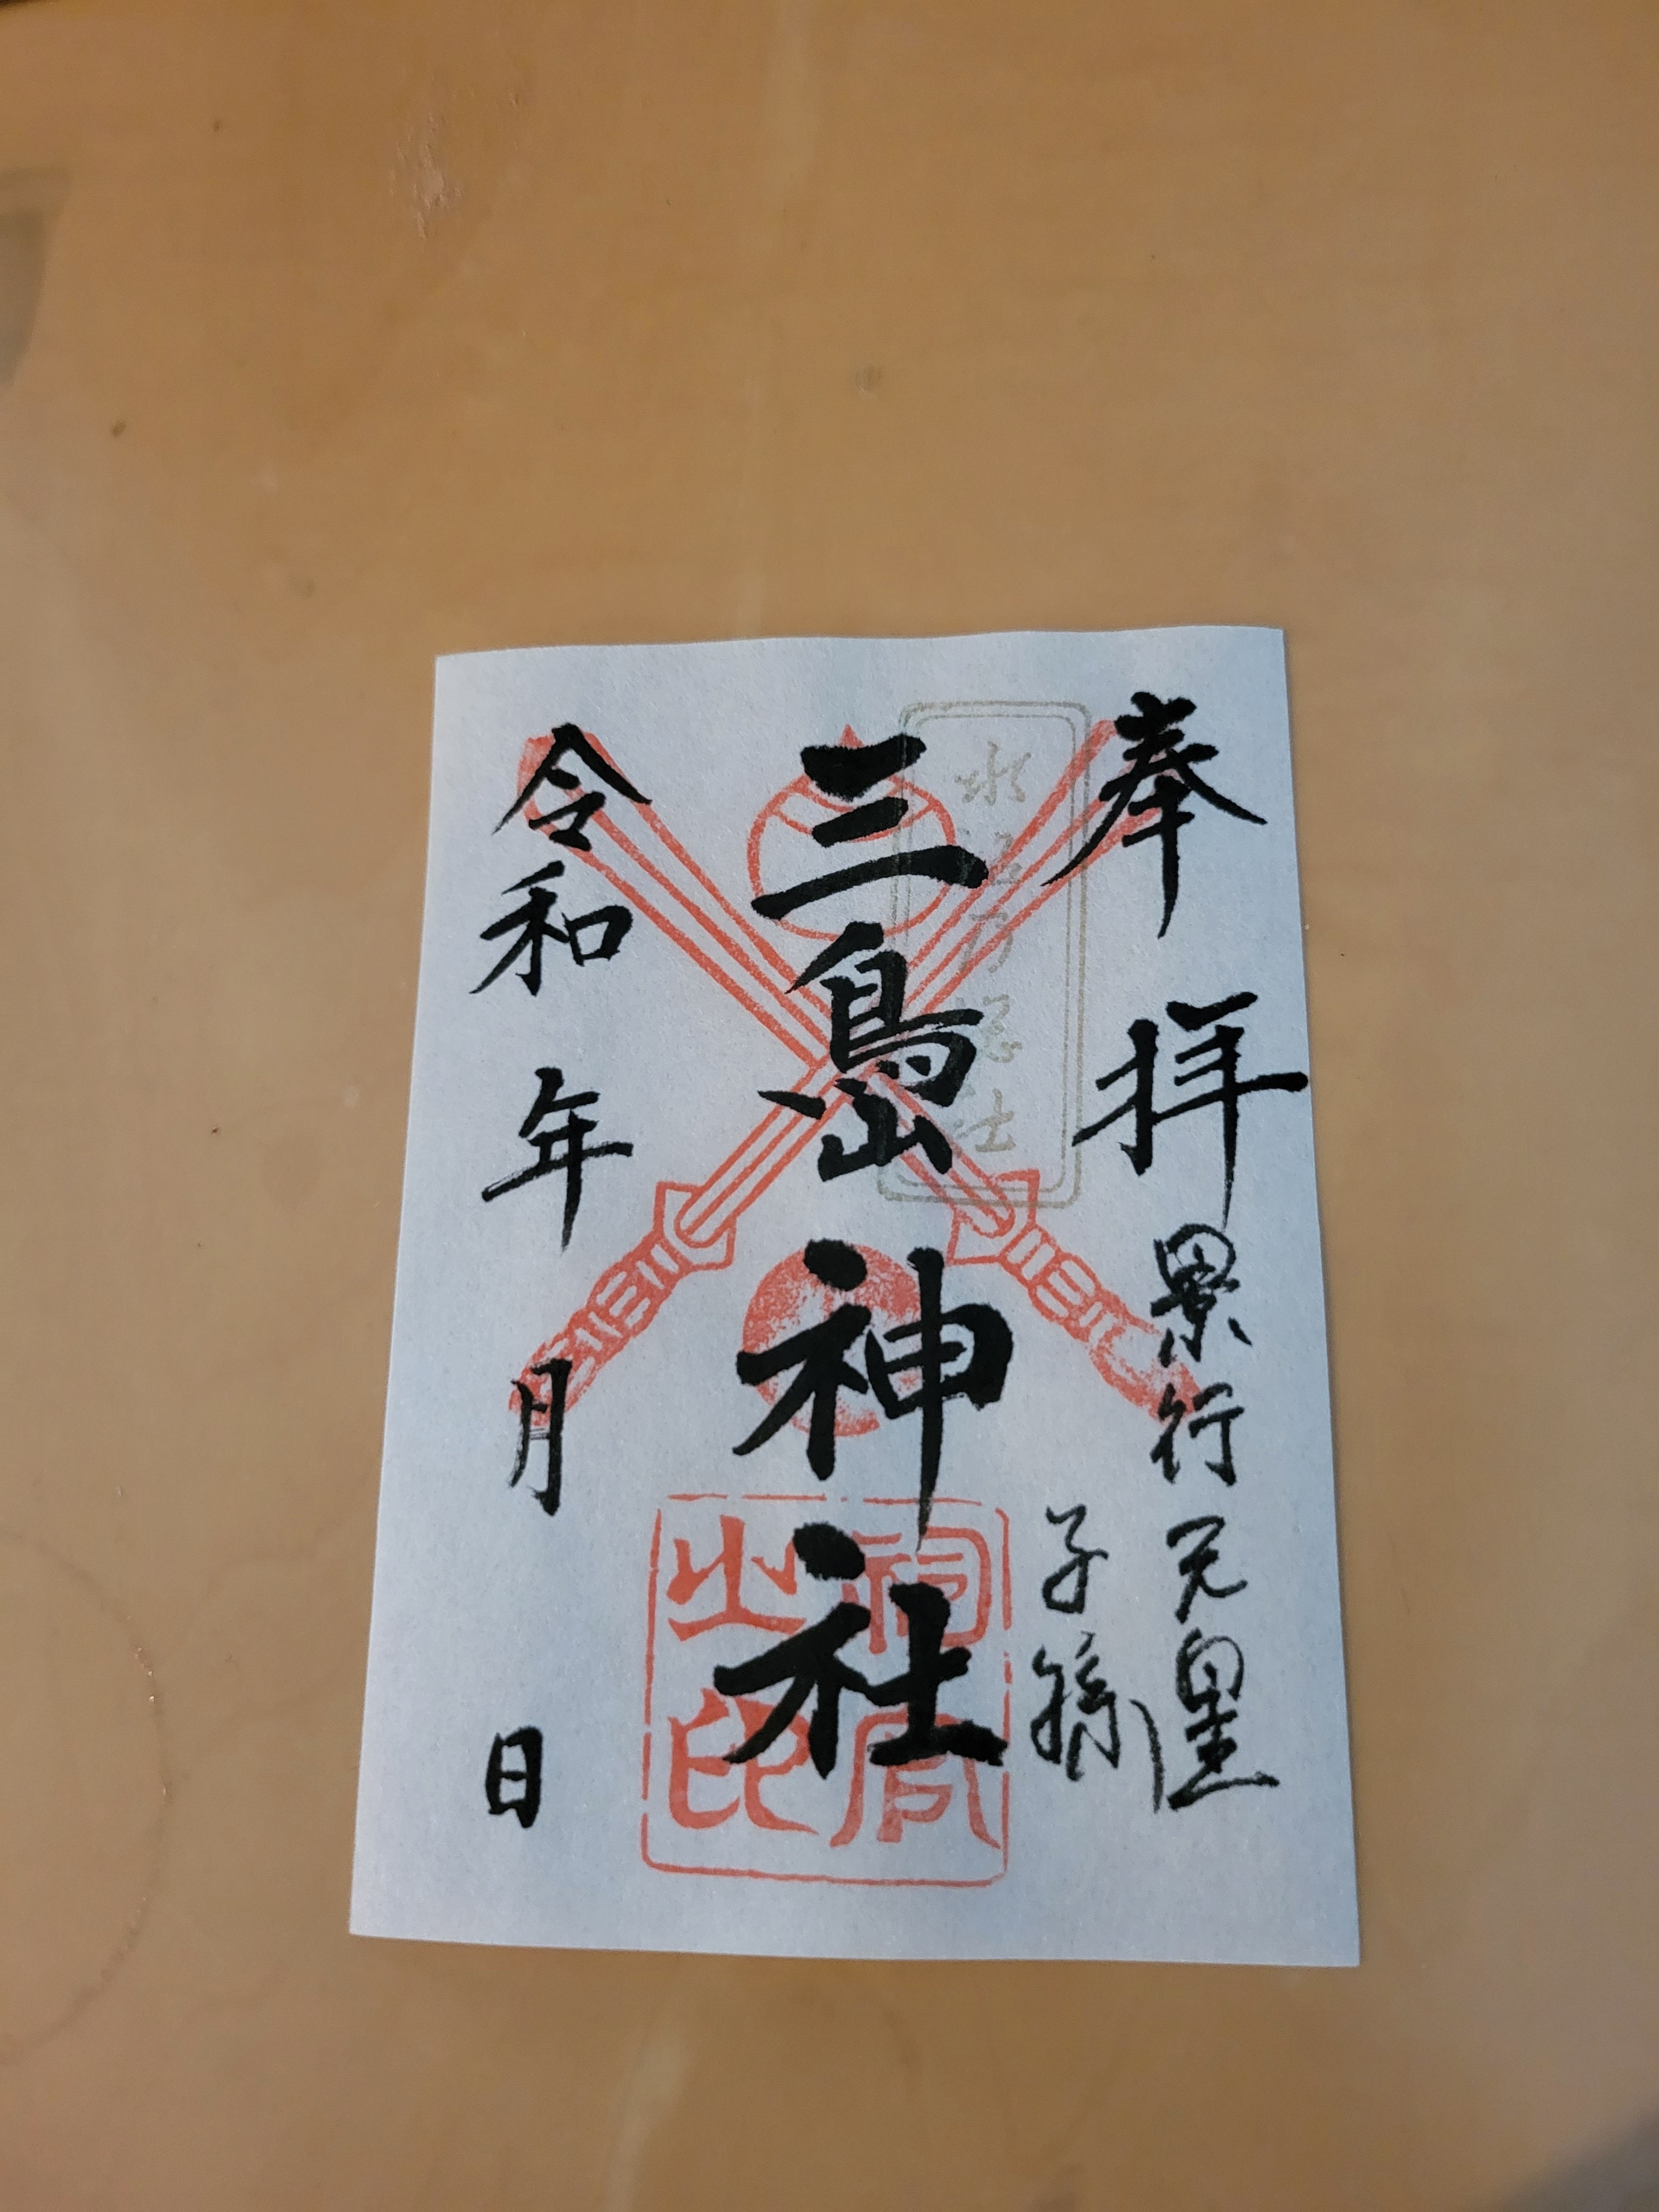 奉拝
景行天皇
子孫
三島神社
祠官之印
令和 年 月 日